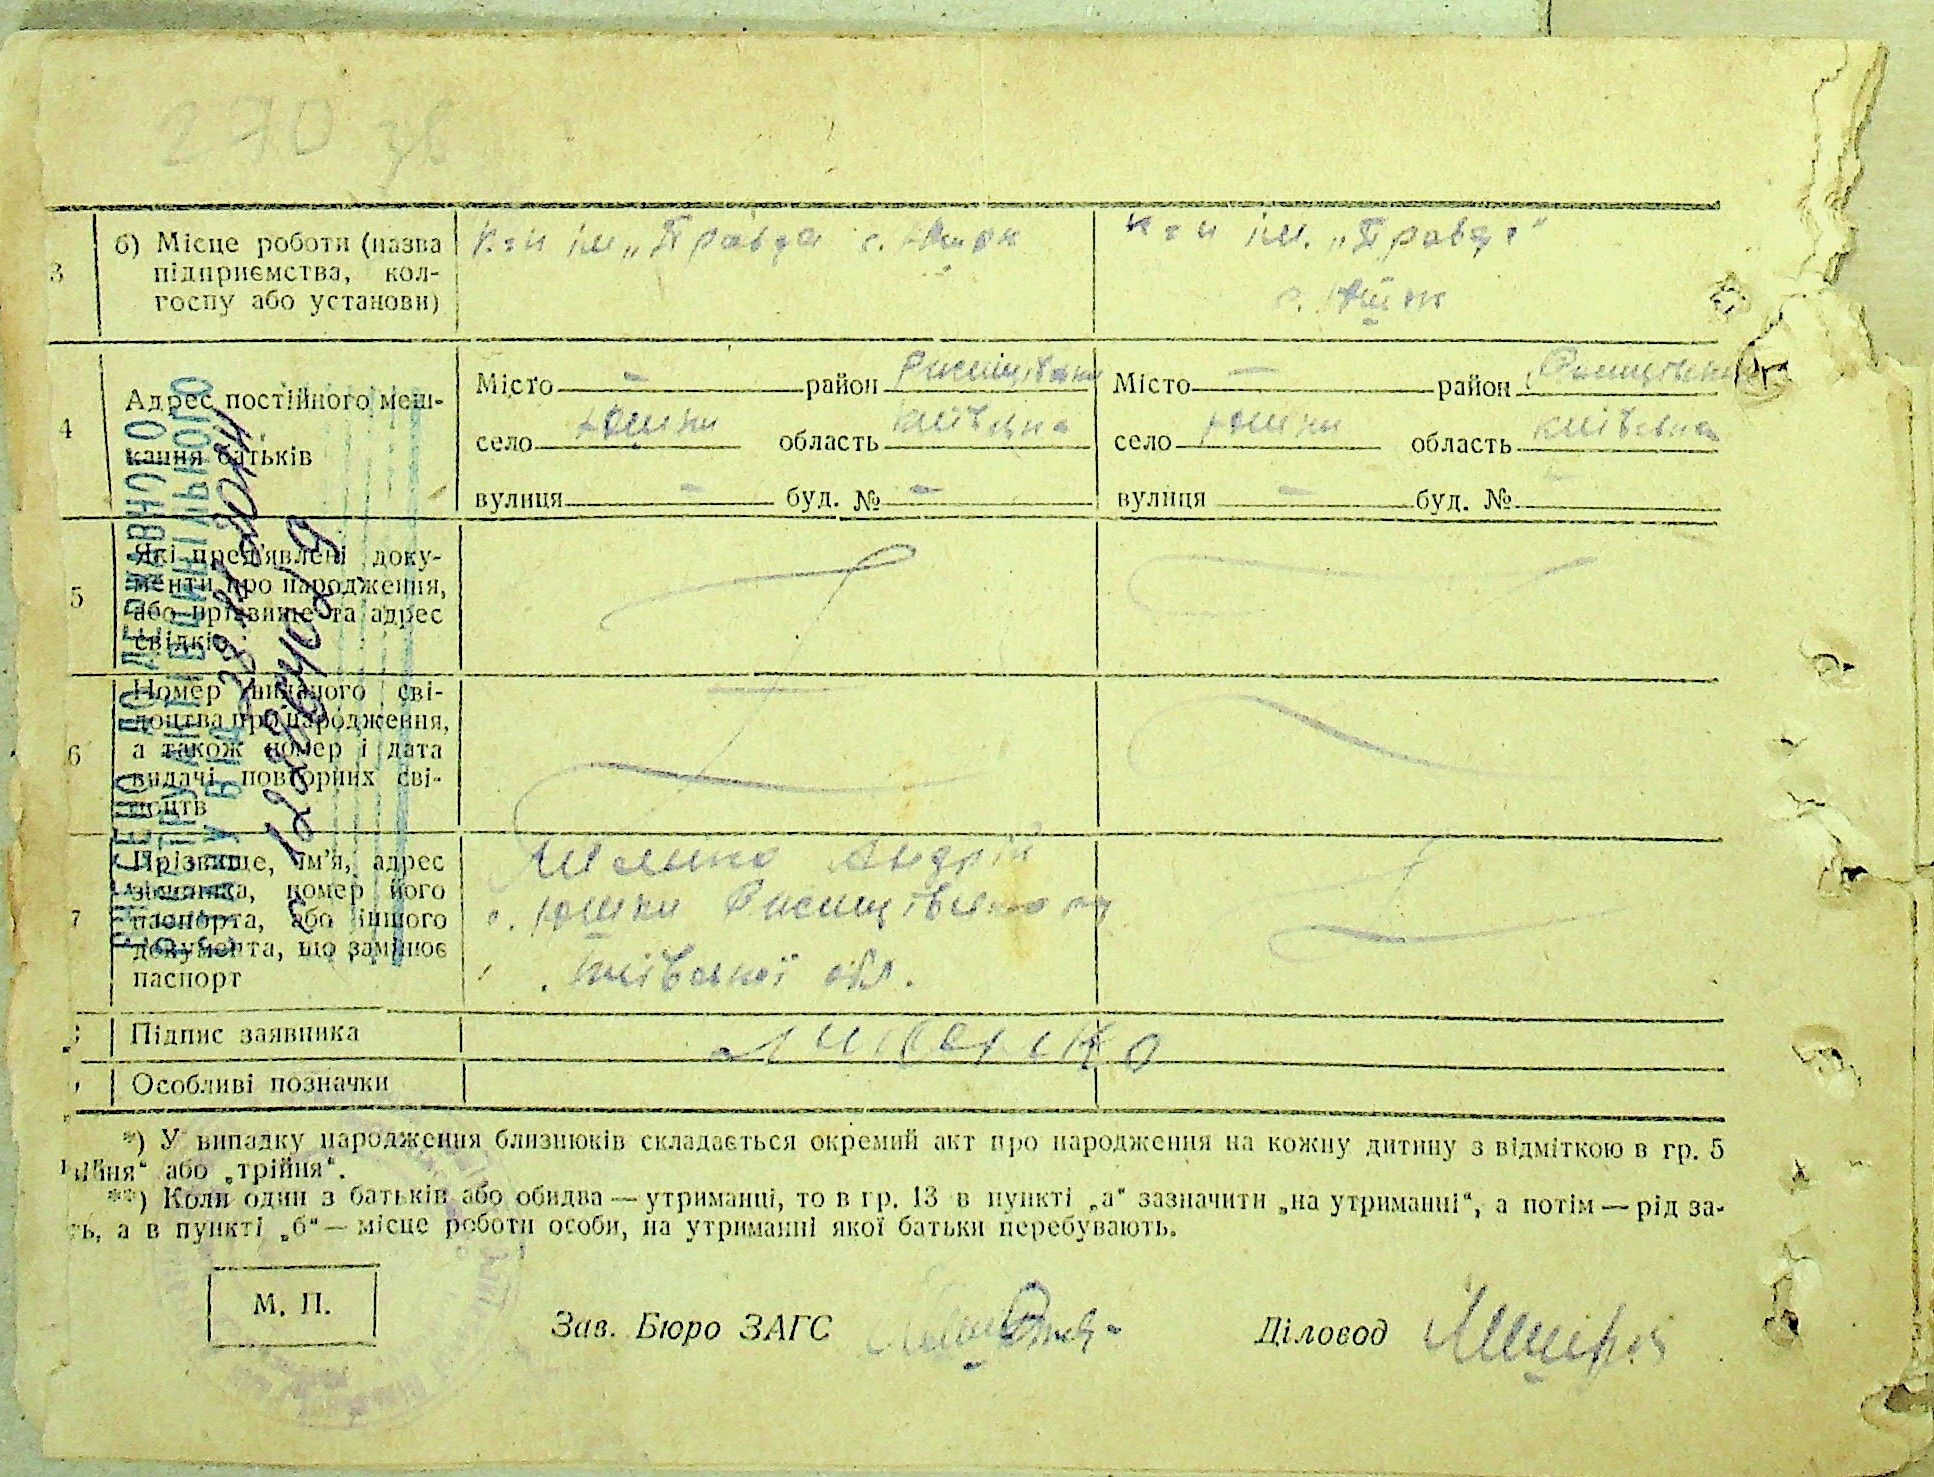 270
3
б) Місце роботи (назва підприємства, колгоспу або установи)
К-п ім „Правда с. Юшки
К-п ім. „Правда“
с. Юшки
4
Адрес постійного мешкання батьків
Місто - район Ржищівськи
село Юшки область Київська
вулиця - буд. № -
Місто - район Ржищівськи
село Юшки область Київська
вулиця - буд. №
5
Які пред'явлені документи про народження, або прізвище та адрес свідків
6
Номер виданого свідоцтва про народження, а також номер і дата видачі повторних свідоцтв
7
Прізвище, ім'я, адрес заявника, номер його паспорта, або іншого документа, що замінює паспорт
Андрій
с. Юшки Ржищівського
Київської обл.
Підпис заявника
Особливі позначки
ВНЕСЕНО ДО ДЕРЖАВНОГО
*) У випадку народження близнюків складається окремий акт про народження на кожну дитину з відміткою в гр. 5
„двійня“ або „трійня“.
**) Коли один з батьків або обидва — утриманці, то в гр. 13 в пункті „а“ зазначити „на утриманні“, а потім — рід за-
ть, а в пункті „б“ — місце роботи особи, на утриманні якої батьки перебувають.
М. П.
Зав. Бюро ЗАГС
Діловод